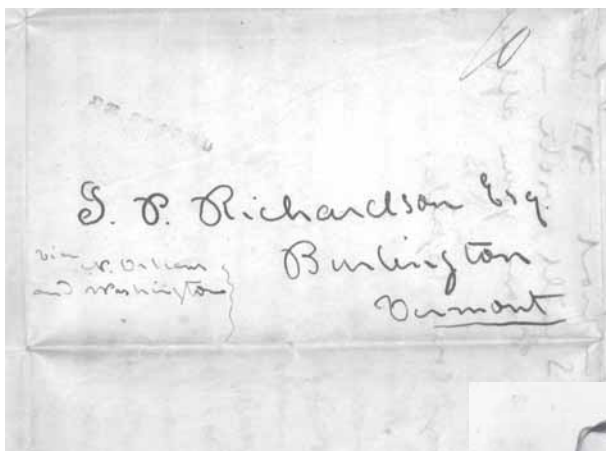 10
S. P. Richardson Esq.
Burlington
Vermont
via N. Orleans
and Washington